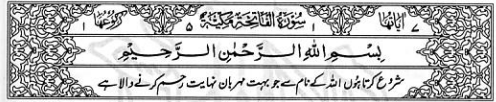 ٧ اٰيَاتُهَا ١ سُوْرَةُ الْفَاتِحَةِ مَكِّيَّةٌ ٥ رُكُوْعُهَا ١
بِسْمِ اللّٰهِ الرَّحْمٰنِ الرَّحِيْمِ
شروع کرتا ہوں اللہ کے نام سے جو بہت مہربان نہایت رحم کرنے والا ہے